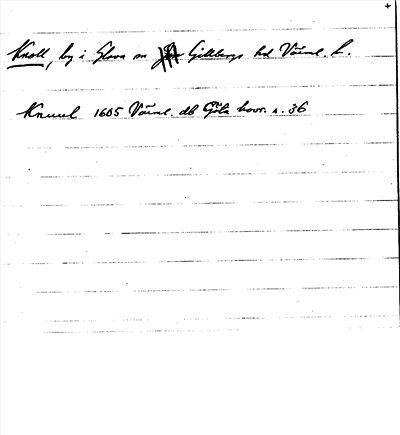 Knoll, by i Glava sn Gillbergs hd Värml. l.
Knuul 1605 Värml. db Göta hovr. s. 36